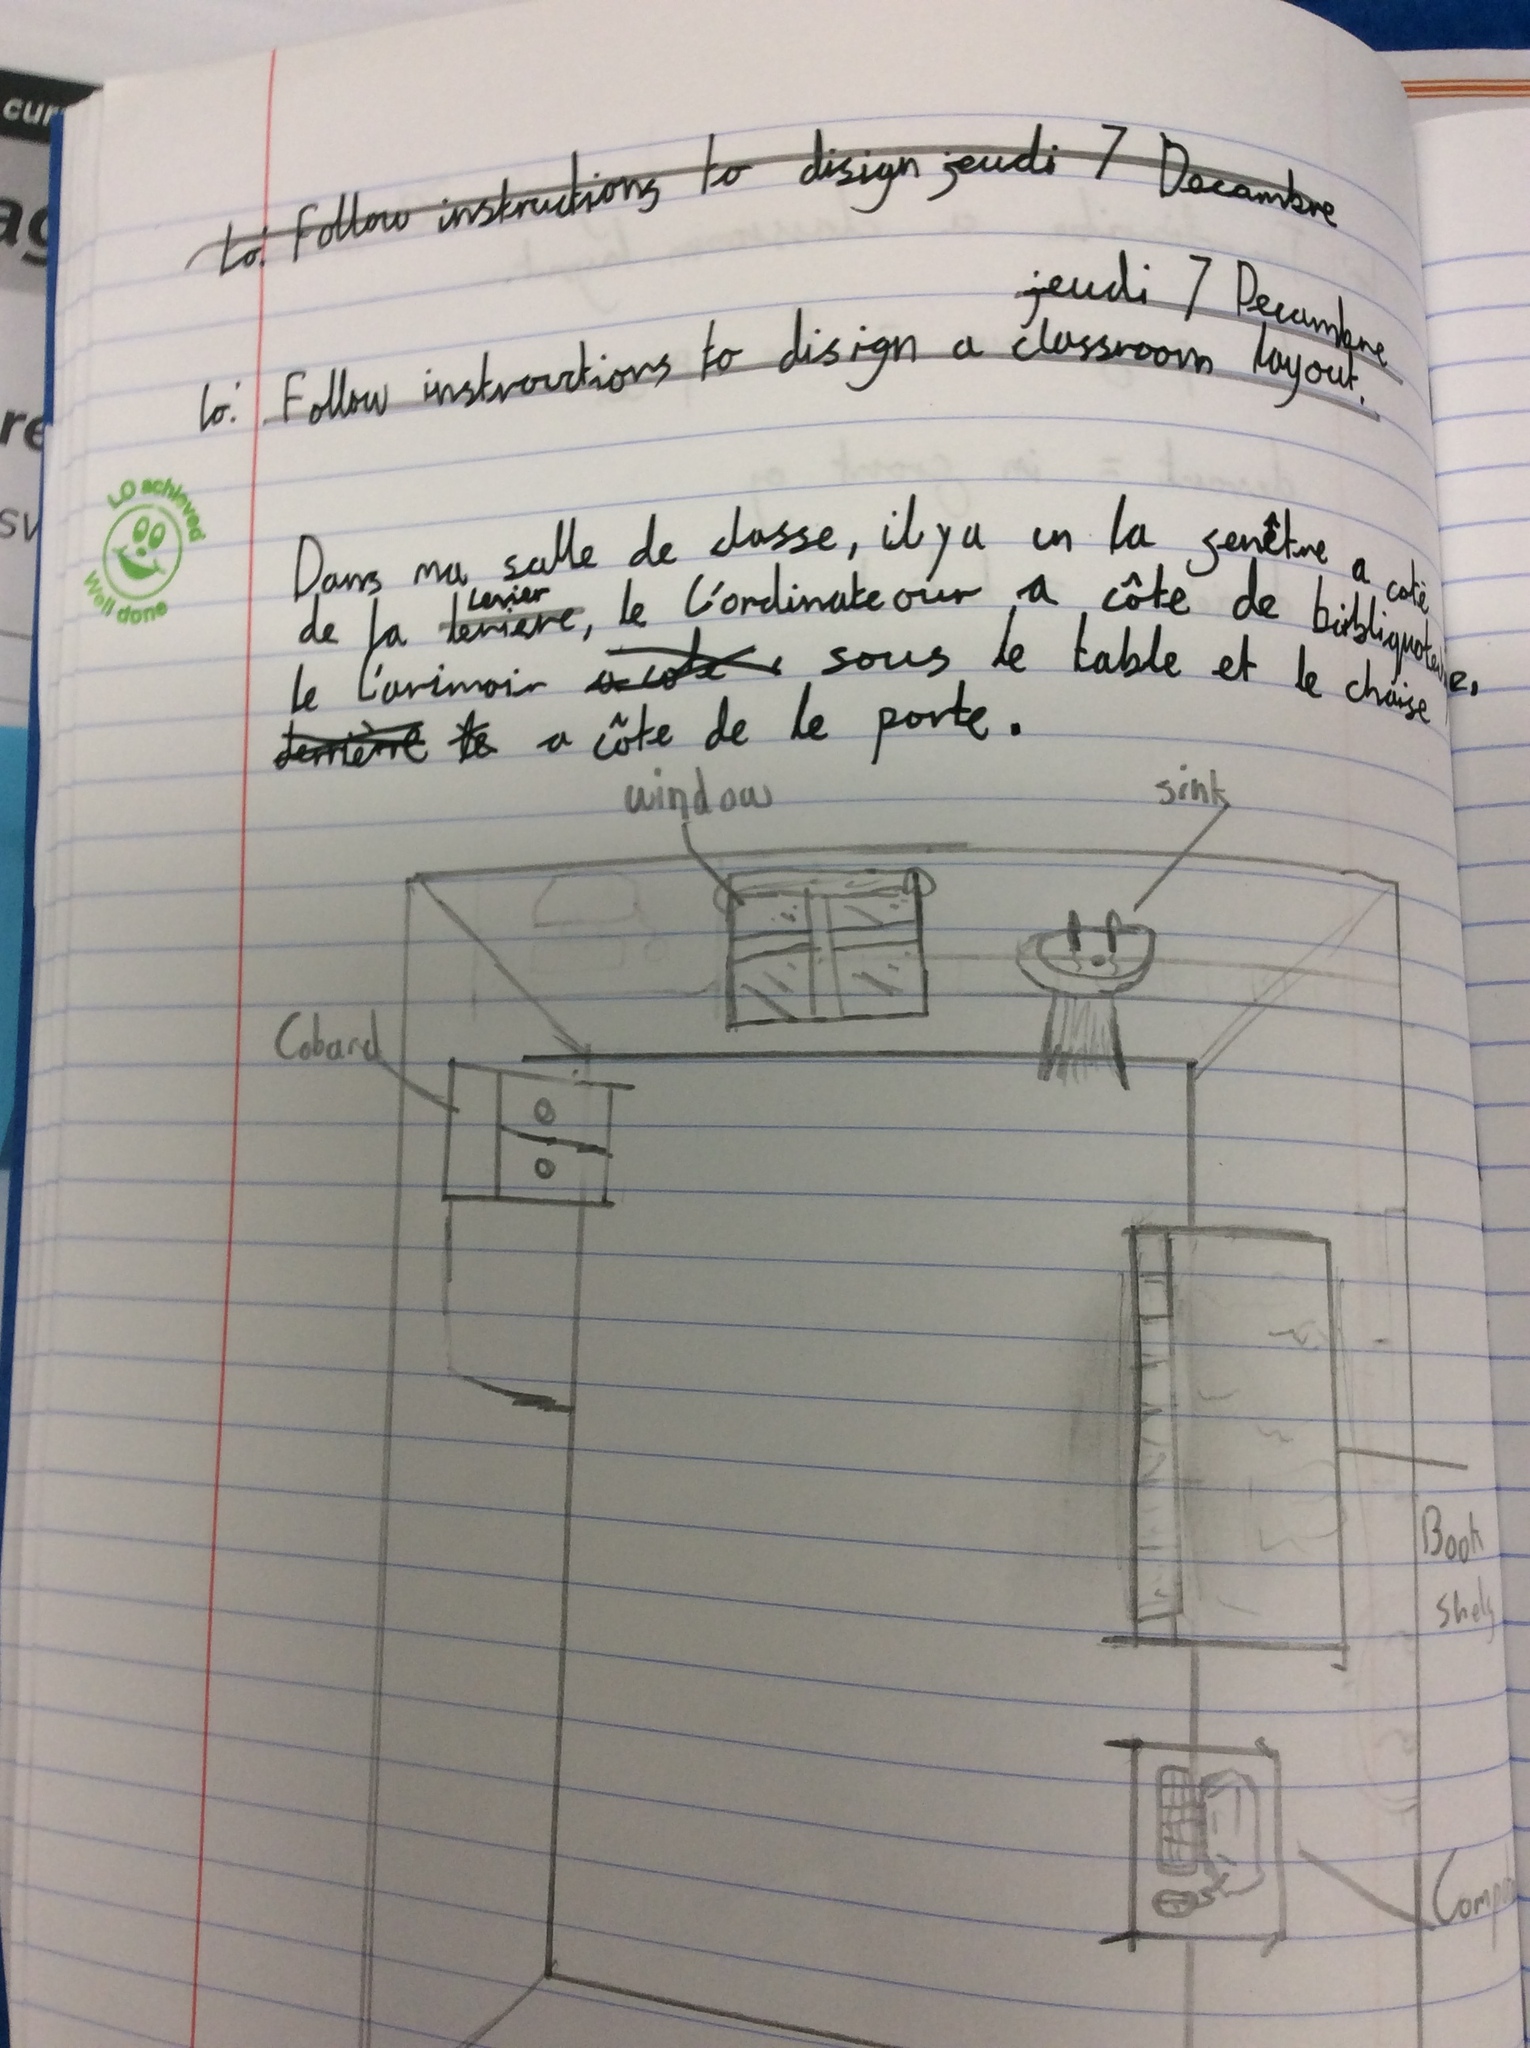 cur
ag
re
sw
Lo: Follow instructions to disign jeudi 7 Decambre
jeudi 7 Decambre
Lo: Follow instructions to disign a classroom layout.
LO achieved
Well done
Dans ma salle de classe, il y a un la fenêtre a coté
levier
de la leriere, le l'ordinateour a côte de birbliquoteire,
le l'arimoir a cote sous le table et le chaise
derrière le a côte de le porte.
window
sink
Cobard
Book
shelf
Comp